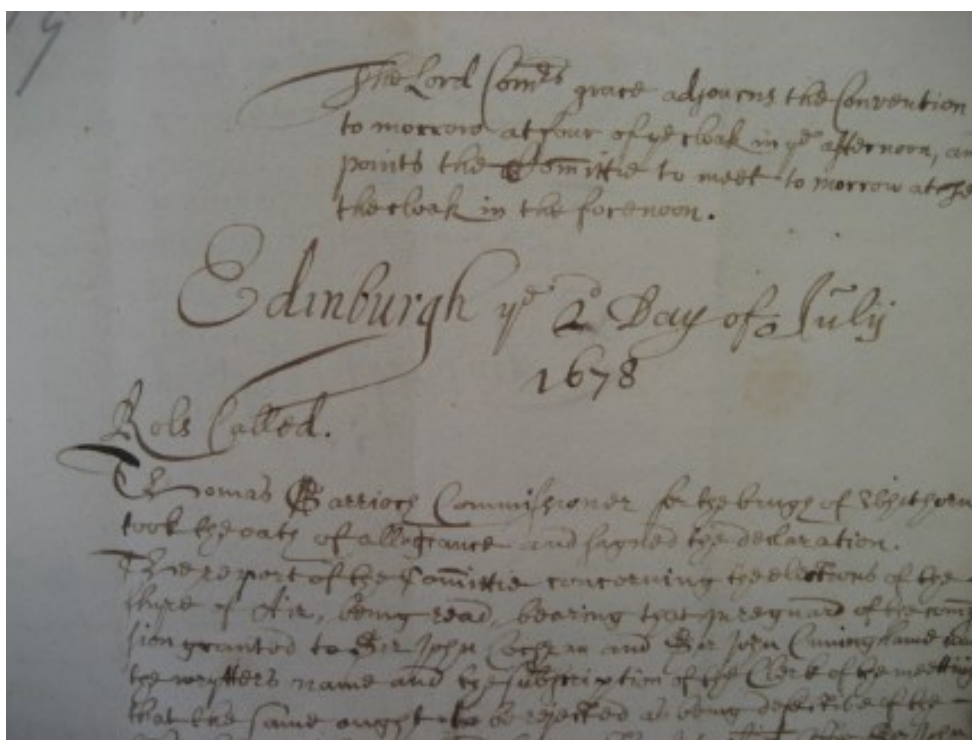 The Lord Com̅rs grace adjourns the Convention
to morrow at four of ye cloak in ye afternoon, an
points the Comittie to meet to morrow at
the cloak in the forenoon.
Edinburgh ye 2d Day of July
1678
Rols Called.
Thomas Garrioch Commissioner for the burgh of Whithorn
took the oath of allegiance and signed the declaration.
The report of the Comittie concerning the elections of the
shyre of Air, being read, bearing that in reguard of the com
sion granted to Sir John Cochran and Sir John Cuninghame
the wrytters name and the subscription of the Clerk of the meetting
that the same ought to be rejected as being defective of the